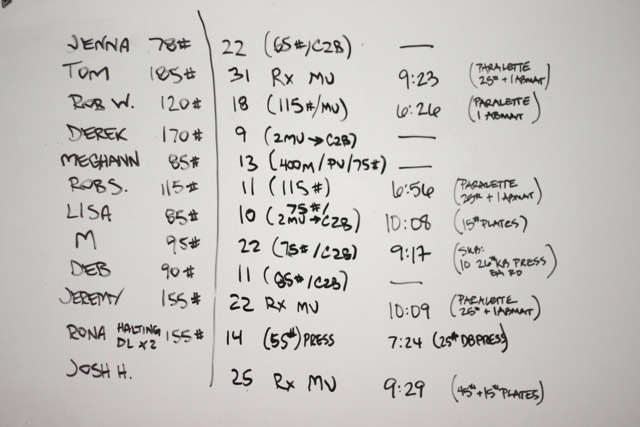 JENNA 78# 22 (65#/C2B) —
TOM 185# 31 RX MU 9:23 (PARALETTE 25# + 1 ABMAT)
ROB W. 120# 18 (115#/MU) 6:26 (PARALETTE 1 ABMAT)
DEREK 170# 9 (2MU→C2B) —
MEGHANN 85# 13 (400M/PU/75#) —
ROB S. 115# 11 (115#) 6:56 (PARALETTE 25# + 1 ABMAT)
LISA 85# 10 (75#/ 2MU→C2B) 10:08 (15# PLATES)
M 95# 22 (75#/C2B) 9:17 (SUB: 10 26# KB PRESS EA RD)
DEB 90# 11 (85#/C2B) —
JEREMY 155# 22 RX MU 10:09 (PARALETTE 25# + 1 ABMAT)
RONA HALTING DL X2 155# 14 (55#) PRESS 7:24 (25# DB PRESS)
JOSH H. 25 RX MU 9:29 (45# + 15# PLATES)